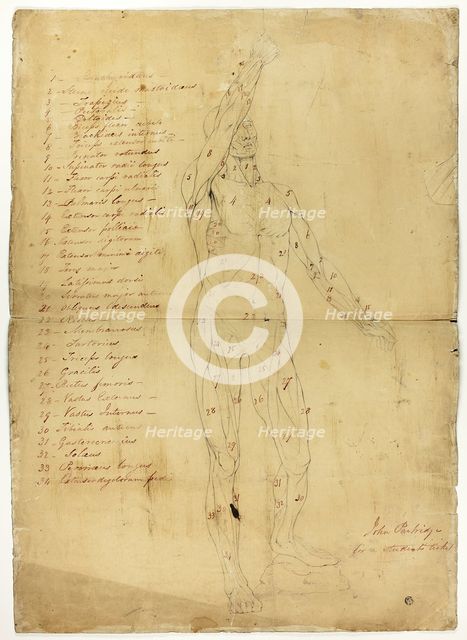 2 - Sterno cleido Mastoideus
3 - Trapezius
4 Pectoralis -
5 Deltoides -
6 Biceps flexor cubiti
7 Brachideus internus -
8 Triceps extensor cubiti -
9 Pronator rotundus
10 Supinator radii longus
11 - Flexor carpi radialis
12 - Flexor carpi ulnaris
13 - Palmaris longus -
14 Extensor carpi radialis
15 Extensor pollicis
16 Extensor digitorum
17 Extensor minimi digiti
18 Teres major
19 Latissimus dorsi
20 Serratus major
21 Obliquus descendens
22
23 - Membranosus
24 - Sartorius
25 - Triceps longus
26 Gracilis
27 - Rectus femoris -
28 - Vastus Externus -
29 - Vastus Internus -
30 Tibialis anticus
31 - Gastrocnemius
32 - Soleus
33 Peroneus longus
34 Extensor digitorum pedis
John Partridge
for a students ticket
Heritage
Heritage
Heritage
Heritage
Heritage
Heritage